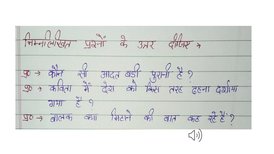 निम्नलिखित प्रश्नों के उत्तर दीजिए →
प्र० → कौन सी आदत बडी पुरानी है ?
प्र० → कविता में देश को किस तरह दर्शाया
गया है ?
प्र० → बालक क्या मिटाने की बात कह रहे हैं ?